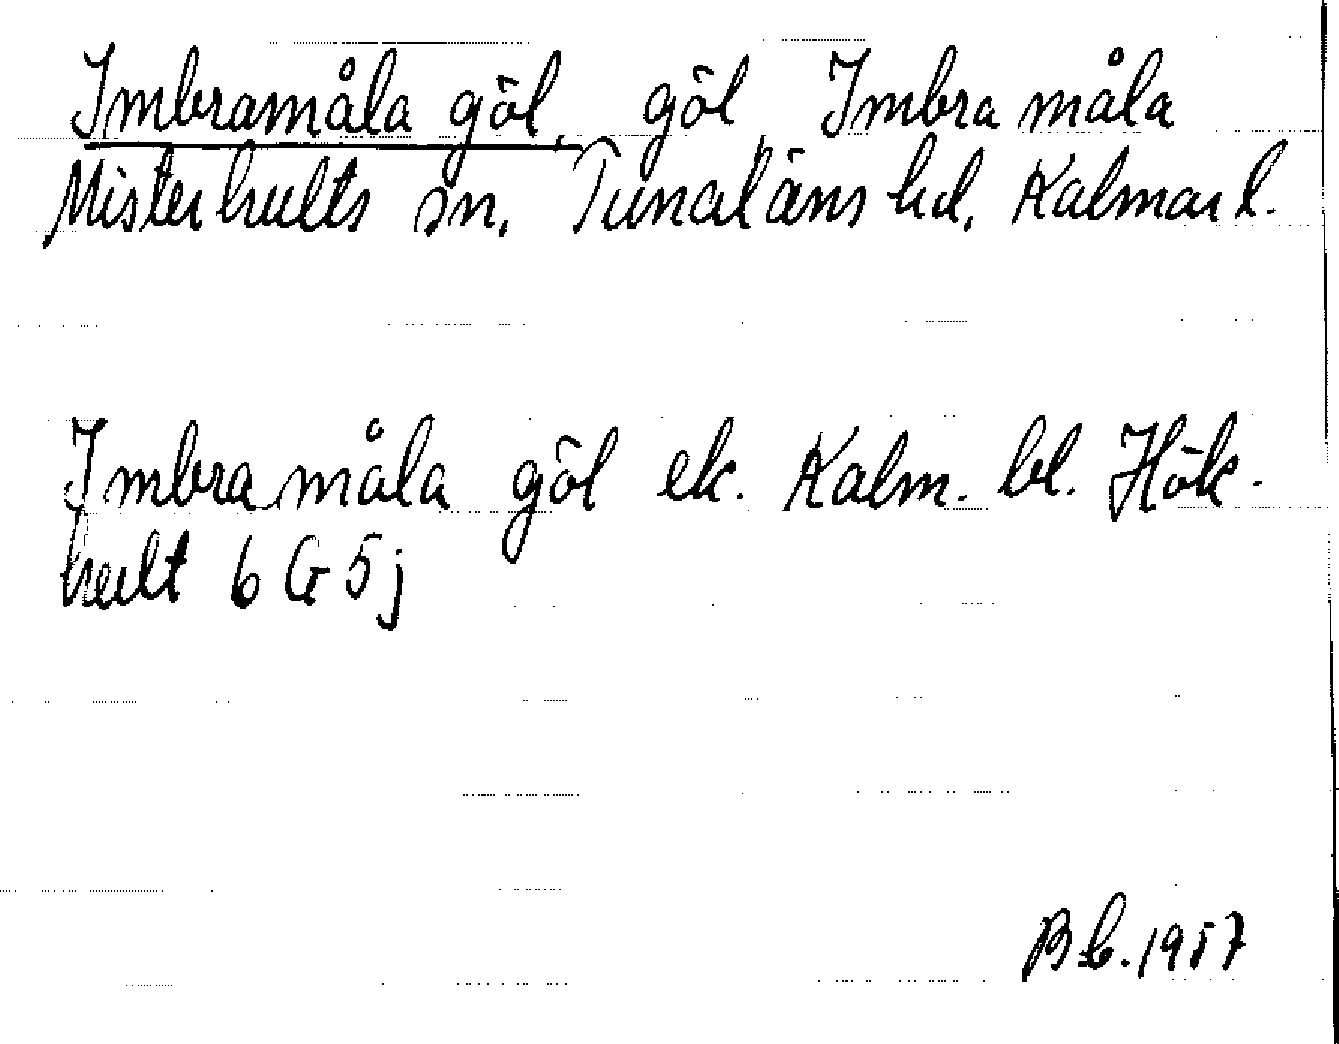 Imbramåla göl, göl, Imbramåla
Misterhults sn, Tunaläns hd, Kalmar l.
Imbramåla göl ek. Kalm. bl. Hök-
hult 6 G 5j
Bb. 1957